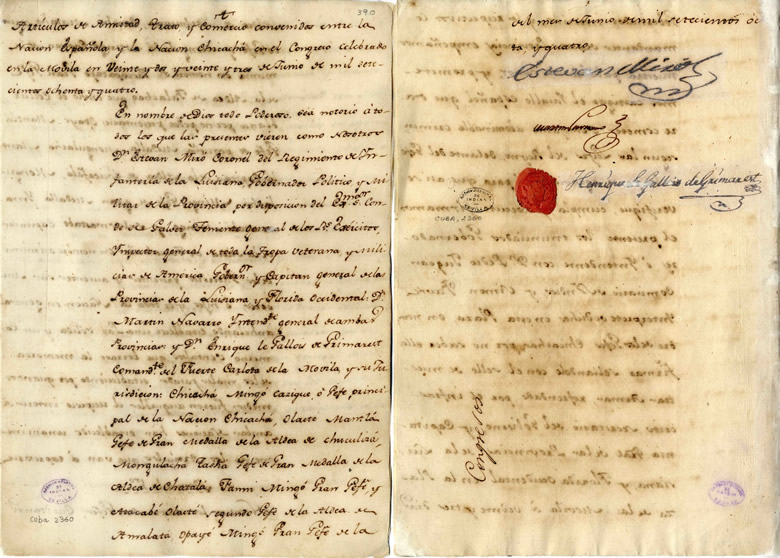 390
Articulos de Amistad, Trato, y Comercio convenidos entre la
Nacion Española y la Nacion Chicachá en el Congreso Celebrado
en la Mobila en Veinte y dos, y veinte y tres de Junio de mil Sete-
cientos ochenta y quatro.
En nombre de Dios todo Poderoso. sea notorio a to-
dos los que las presentes vieren como Nosotros
Dn. Estevan Miró Coronel del Regimiento de Ynf-
fanteria de la Luisiana Gobernador Politico y Mi-
litar de la Provincia por disposicion del Exmo. Sr. Con-
de de Galvez Teniente general de los Rs. Exércitos,
Ynspector general de toda la Tropa veterana, y Mili-
cias de America, Gobernr. y Capitan general de las
Provincias de la Luisiana y Florida Occidental: Dn.
Martin Navarro Yntende. general de ambas
Provincias y Dn. Enrique le Gallois de Grimarest
Comandte. del Fuerte Carlota de la Movila, y su Ju-
risdicion: Chicachá Mingó Cazique, ó Gefe princi-
pal de la Nacion Chicachá, Olacté Mantlá
Gefe de Gran Medalla de la Aldea de
Mongulachá Taská Gefe de Gran Medalla de la
Aldea de Chatala, Fanni Mingó Gran Gefe y
Atacabé Olacté Segundo Gefe de la Aldea de
Amalata Opayé Mingó Gran Gefe de la
ARCHIVO GENERAL DE INDIAS SEVILLA
CUBA 2360
del mes de Junio de mil setecientos och-
ta, y quatro.
Estevan Miró
Martin Navarro
Henrique le Gallois de Grimarest
ARCHIVO GENERAL DE INDIAS SEVILLA
CUBA, 2360
Congresos